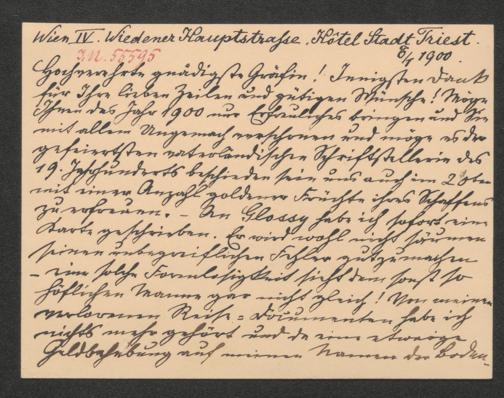 Wien IV. Wiedener Hauptstrasse. Hôtel Stadt Triest.
I.N. 55595
6/1 1900.
Hochverehrte gnädigste Gräfin! Innigsten Dank
für Ihre lieben Zeilen und gütigen Wünsche! Möge
Ihnen das Jahr 1900 nur Erfreuliches bringen und Sie
mit allem Ungemach verschonen und möge es der
gefeiertsten vaterländischen Schriftstellerin des
19. Jahrhunderts beschieden sein uns auch im 20ten
mit einer Anzahl goldener Früchte ihres Schaffens
zu erfreuen. – An Glossy habe ich sofort eine
Karte geschrieben. Er wird wohl nicht säumen
seinen unbegreiflichen Fehler gutzumachen
– eine solche Formlosigkeit sieht dem sonst so
höflichen Manne gar nicht gleich! Von meinen
verlorenen Reise-Documenten habe ich
nichts mehr gehört und da eine etwaige
Geldbehebung auf meinen Namen der Boden-